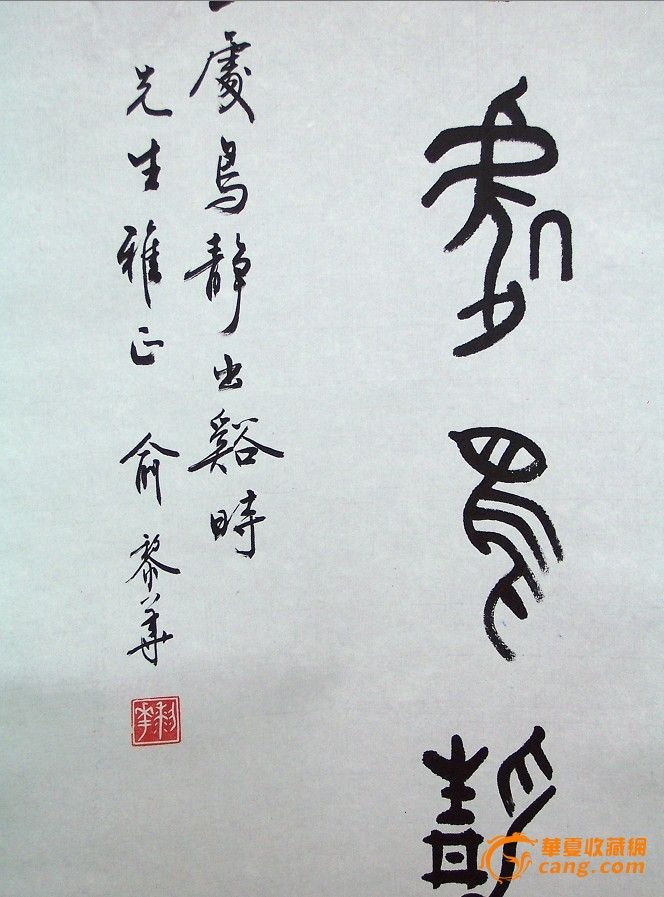 處鳥靜
處鳥靜出谿時
先生雅正 俞黎華
黎華
華夏收藏網
cang.com